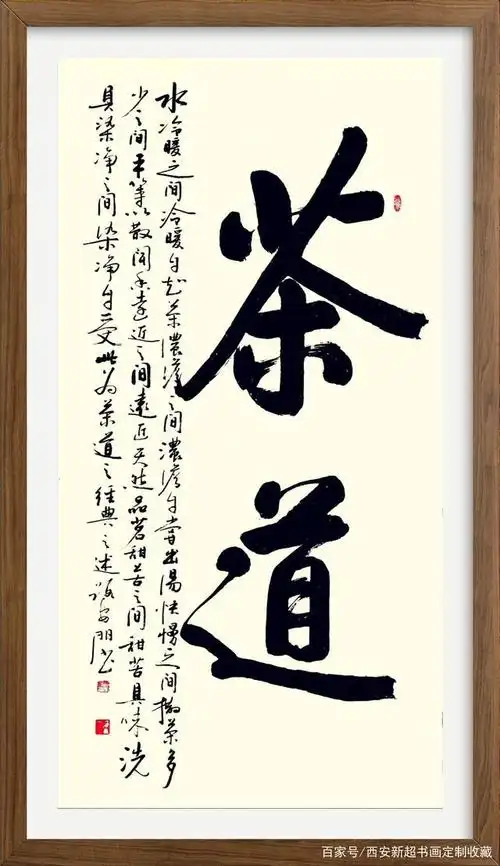 茶道
水冷暖之间冷暖自知茶濃淡之间濃淡自嘗出湯快慢之间茶多
少之间平等散闻香遠近之间遠近天然品茗甜苦之间甜苦具味洗
具染净之间染净自受此为茶道之经典之述
百家号/西安新超书画定制收藏